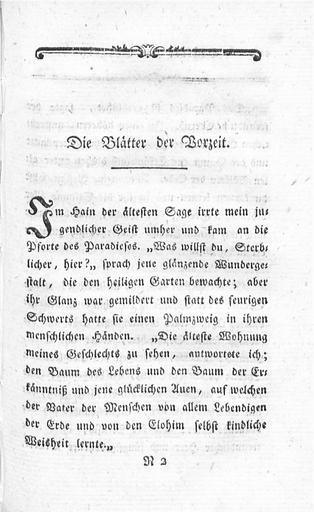 Die Blätter der Vorzeit.
Im Hain der ältesten Sage irrte mein ju-
gendlicher Geist umher und kam an die
Pforte des Paradieses. „Was willst du, Sterb-
licher, hier?„ sprach jene glänzende Wunderge-
stalt, die den heiligen Garten bewachte; aber
ihr Glanz war gemildert und statt des feurigen
Schwerts hatte sie einen Palmzweig in ihren
menschlichen Händen. „Die älteste Wohnung
meines Geschlechts zu sehen, antwortete ich;
den Baum des Lebens und den Baum der Er-
känntniß und jene glücklichen Auen, auf welchen
der Vater der Menschen von allem Lebendigen
der Erde und von den Elohim selbst kindliche
Weisheit lernte.„
N 2